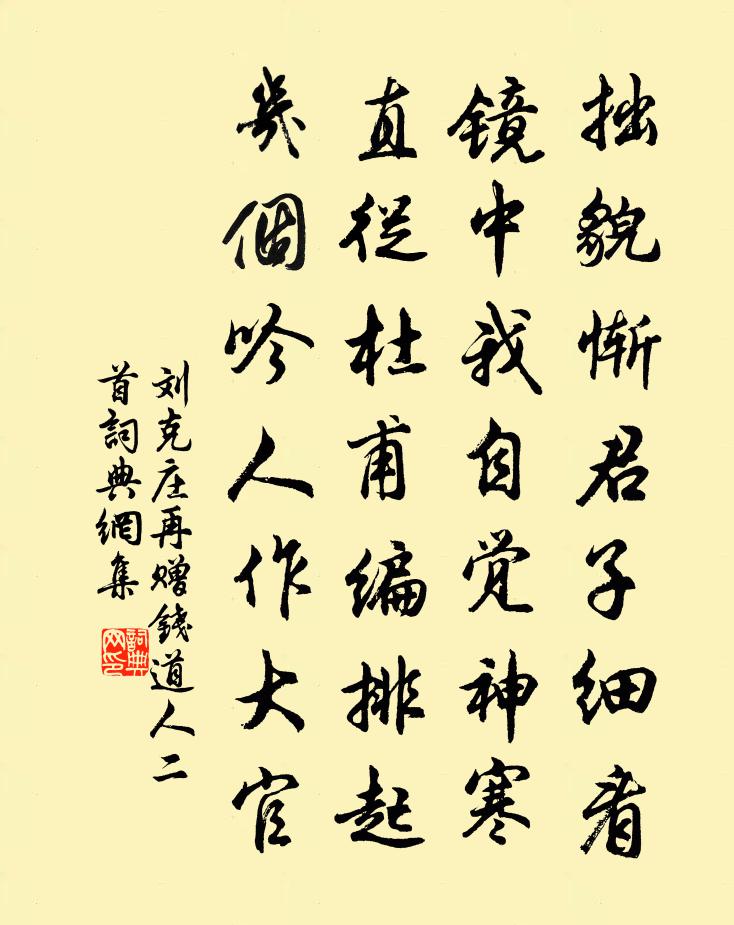 拙貌惭君子细看
镜中我自觉神寒
直從杜甫编排起
幾個吟人作大官
刘克庄再赠錢道人二
首詞典網集
詞典
网印